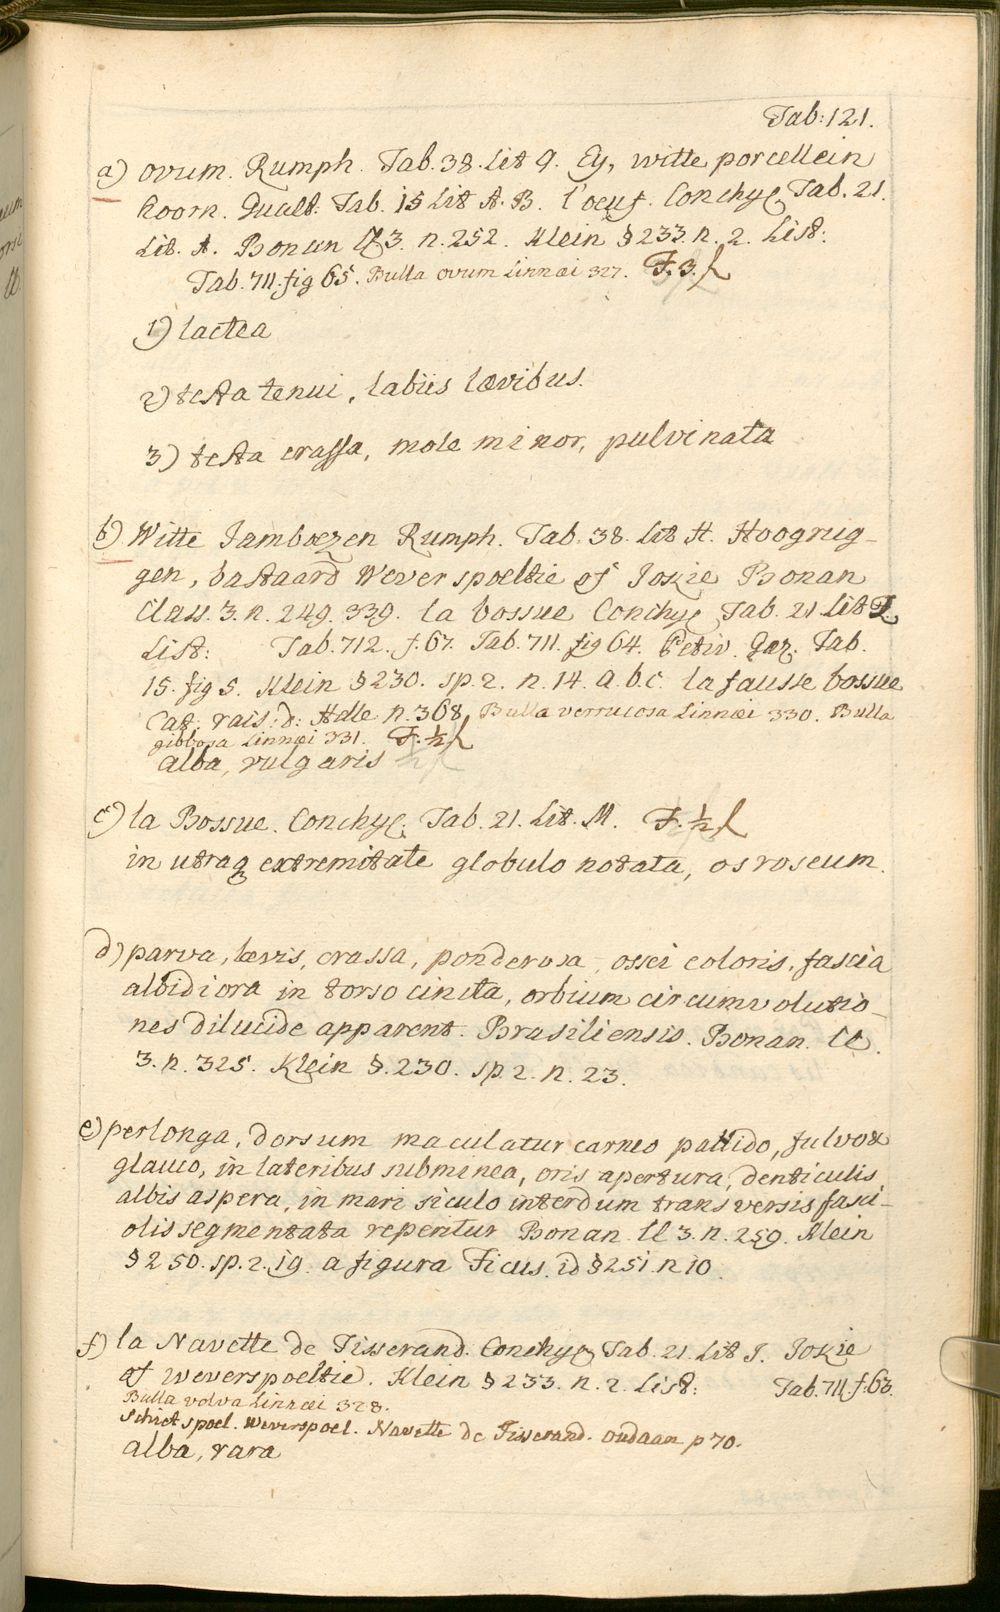 Tab: 121.
a) ovum. Rumph. Tab. 38. Lit Q. Ey, witte porcellein
hoorn. Gualt. Tab. 15 Lit A. B. l'oeuf. Conchyl. Tab. 21.
Lit. A. Bonan Cl 3. n. 252. Klein § 233. n. 2. List:
Tab. 711. fig 65. Bulla ovum Linnæi 327. F. 3.
1) lactea
2) testa tenui, labiis lævibus.
3) testa crassa, mole minor, pulvinata
b) Witte Jamboezen Rumph. Tab. 38. Lit H. Hoogrug-
gen, bastaard Weverspoeltie of Joxie Bonan
Class. 3. n. 249. 339. la bossue Conchyl Tab. 21 Lit
List: Tab. 712. f. 67. Tab. 711. fig 64. Petiv. Gaz. Tab.
15. fig 5. Klein § 230. sp. 2. n. 14. a. b. c. la fausse bossue
Cat. rais: d: Adle n. 368. Bulla verrucosa Linnæi 330. Bulla
gibbosa Linnæi 331. F. ½
alba, vulgaris ½
c) la Bossue. Conchyl. Tab. 21. Lit. M. F. ½
in utraq extremitate globulo notata, os roseum.
d) parva, lævis, crassa, ponderosa, ossei coloris, fascia
albidiora in torso cincta, orbium circumvolutio-
nes dilucide apparent. Brasiliensis. Bonan. Cl.
3. n. 325. Klein §. 230. sp. 2. n. 23.
e) perlonga, dorsum maculatur carneo pallido, fulvo &
glauco, in lateribus subminea, oris apertura, denticulis
albis aspera, in mari siculo interdum transversis fasci-
olis segmentata reperitur Bonan Cl 3. n. 259. Klein
§ 250. sp. 2. 19. a figura Ficus. id § 251. n 10
f) la Navette de Tisserand. Conchyl Tab. 21. Lit I. Joxie
of weverspoeltie. Klein § 233. n. 2. List: Tab. 711 f. 63.
Bulla volva Linnæi 328.
Schietspoel. Weverspoel. Navette de Tisserand. oudaan p 70.
alba, rara